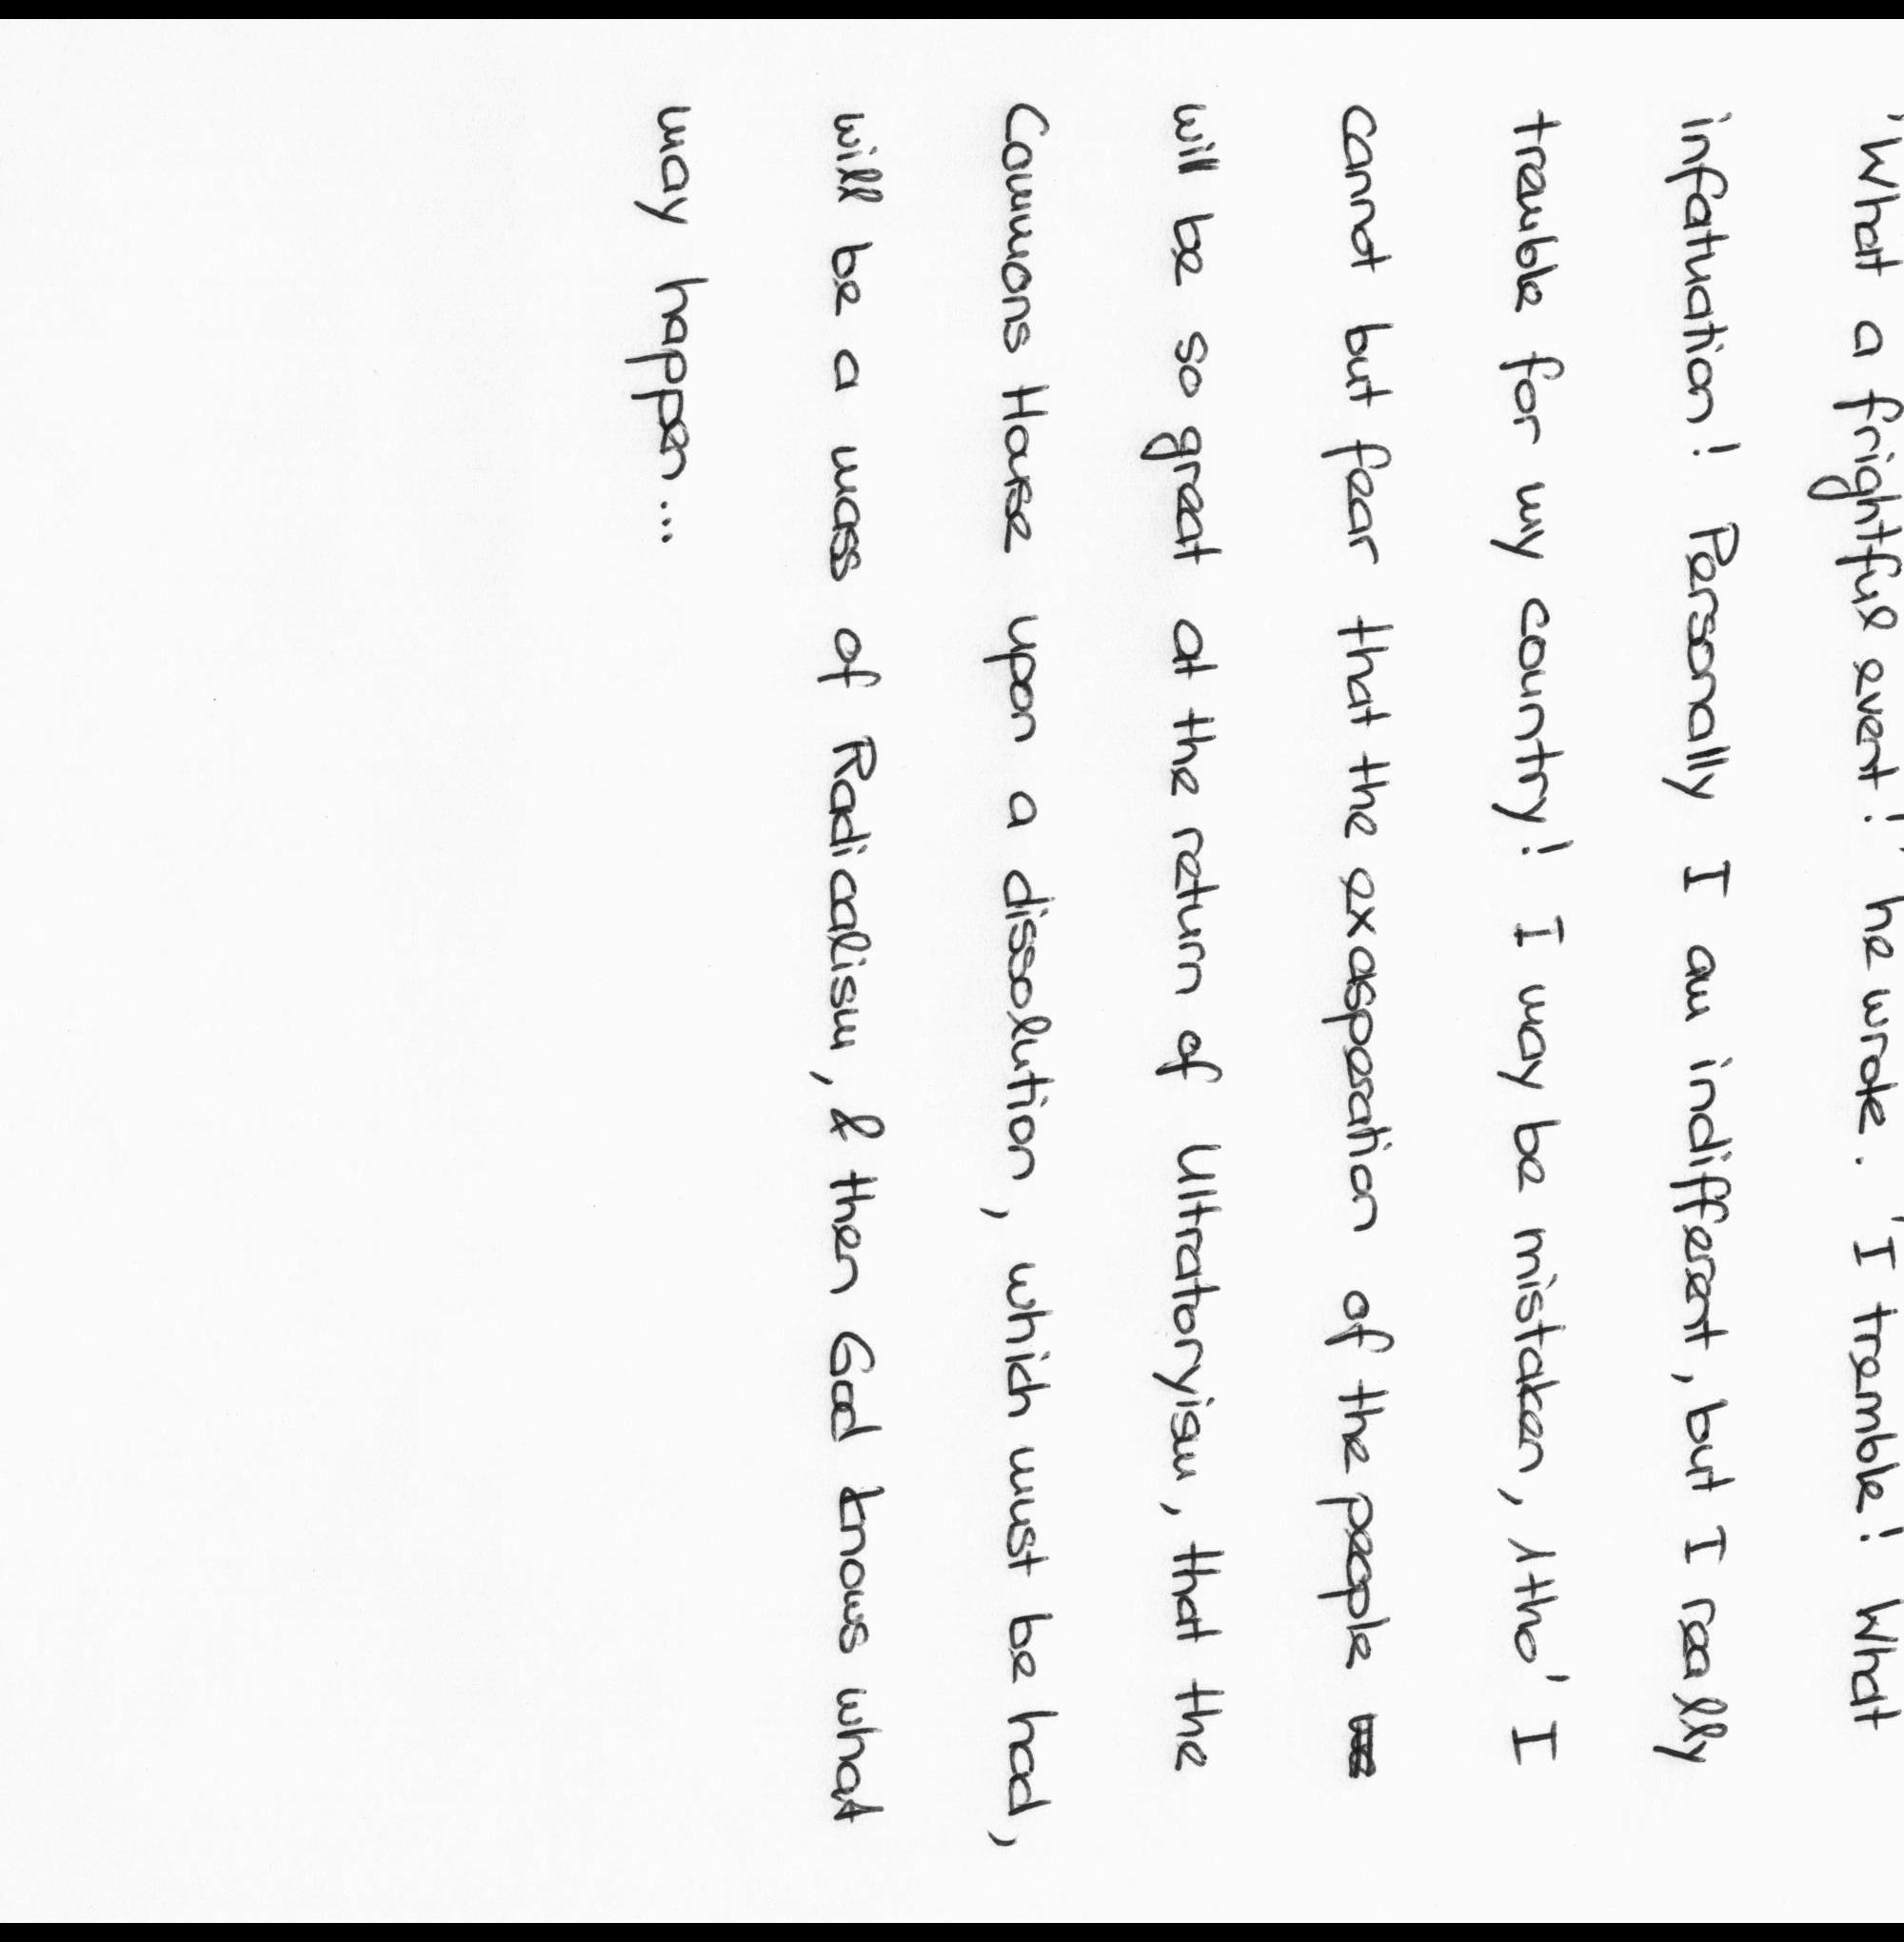 'What a frightful event!' he wrote. 'I tremble! What
infatuation! Personally I am indifferent, but I really
tremble for my country! I may be mistaken, tho' I
cannot but fear that the exasperation of the people
will be so great at the return of Ultratoryism, that the
Commons House upon a dissolution, which must be had,
will be a mass of Radicalism, & then God knows what
may happen...